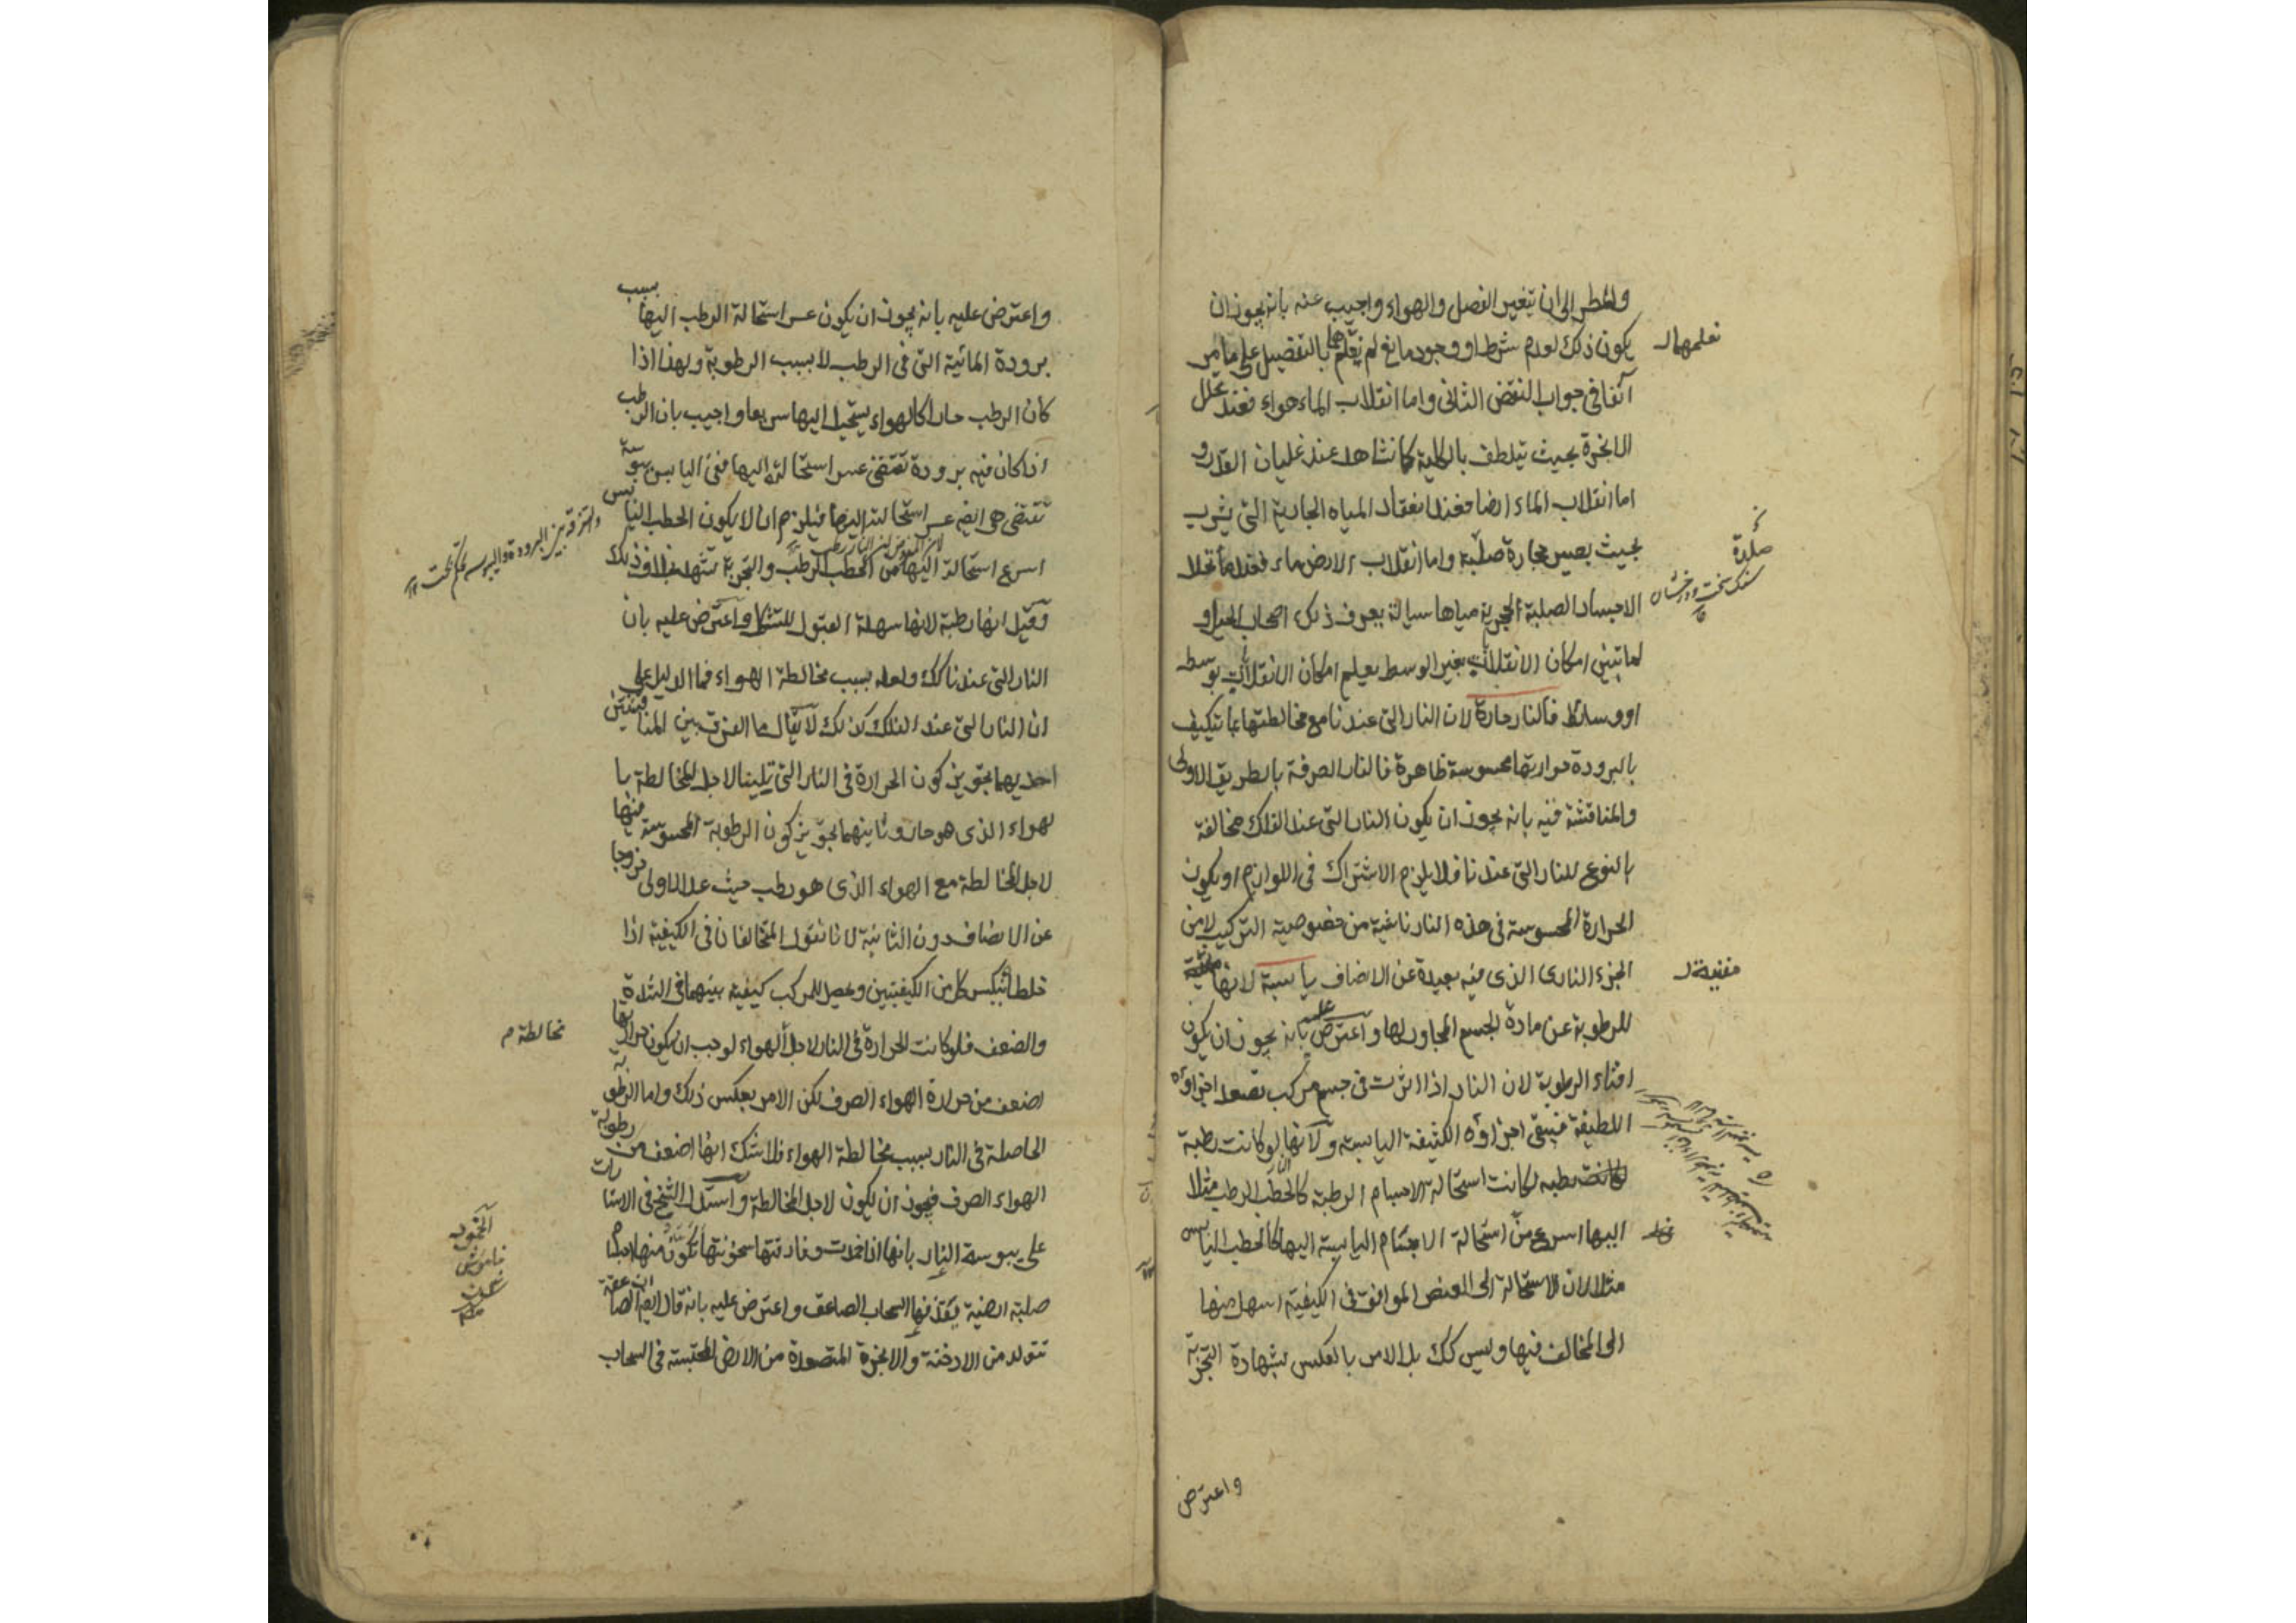 والمطر الى ان يتغير الفصل والهواء واجيب عنه بانه يجوز ان
يكون ذلك لعدم شرط او وجود مانع لم نعلمها بالتفصيل على ما مر
نعلمهما
آنفا فى جواب النقض الثانى واما انقلاب الماء هواء فعند تحلل
الابخرة بحيث يتلطف بالكلية كما نشاهد عند غليان القدر و
اما انقلاب الماء ارضا فعند انعقاد المياه الجارية التى يشرب
بحيث يصير حجارة صلبة واما انقلاب الارض ماء فعند ما تحلل
صلدة
سنك سخت ودرخشان
الاجساد الصلبة الحجرية مياها سيالة يعرف ذلك اصحاب الحيل و
لما تبين امكان الانقلاب بغير الوسط يعلم امكان الانقلاب بوسط
او وسائط فالنار حارة لان النار التى عندنا مع مخالطتها بما يتكيف
بالبرودة حرارتها محسوسة ظاهرة فالنار الصرفة بالطريق الاولى
والمناقشة فيه بانه يجوز ان يكون النار التى عند الفلك مخالفة
بالنوع للنار التى عندنا فلا يلزم الاشتراك فى اللوازم او يكون
الحرارة المحسوسة فى هذه النار ناشية من خصوصية التركيب لا من
الجزء النارى الذى فيه بعيدة عن الانصاف يابسة لانها
مفنية
للرطوبة عن مادة الجسم المجاور لها واعترض عليه بانه يجوز ان يكون
افناء الرطوبة لان النار اذا اثرت فى جسم مركب تصعد اجزاؤه
اللطيفة فيبقى اجزاؤه الكثيفة اليابسة ولانها لو كانت رطبة
لكانت رطبه لكانت استحالة الاجسام الرطبة كالحطب الرطب مثلا
اليها اسرع من استحالة الاجسام اليابسة اليها كالحطب اليابس
مثلا لان الاستحالة الى العنصر الموافق فى الكيفية اسهل منها
الى المخالف فيها وليس كك بل الامر بالعكس بشهادة التجربة
واعترض
واعترض عليه بانه يجوز ان يكون عسر استحالة الرطب اليها بسبب
برودة المائية التى فى الرطب لا بسبب الرطوبة ولهذا اذا
كان الرطب حارا كالهواء يستحيل اليها سريعا واجيب بان الرطب
اذا كان فيه برودة تقتضى عسر استحالته اليها ففى اليابس يبوسة
تقتضى هى ايضا عسر استحالته اليها فيلزم ان لا يكون الحطب اليابس
اسرع استحالة اليها من الحطب الرطب والتجربة تشهد بخلاف ذلك
وقيل انها رطبة لانها سهلة القبول للتشكل واعترض عليه بان
النار التى عندنا كك ولعله بسبب مخالطة الهواء فما الدليل على
ان النار التى عند الفلك كذلك لا يقال ما الفرق بين المناقشتين
احديهما تجويز كون الحرارة فى النار التى تلينا لاجل المخالطة با
لهواء الذى هو حار وثانيتهما تجويز كون الرطوبة المحسوسة منها
لاجل المخالطة مع الهواء الذى هو رطب حيث عد الاولى خروجا
عن الانصاف دون الثانية لانا نقول المتخالفان فى الكيفية اذا
خلطا ينكسر كل من الكيفيتين وحصل للمركب كيفية بينهما فى الشدة
والضعف فلو كانت الحرارة فى النار لاجل الهواء لوجب ان يكون حرارتها
مخالطة م
اضعف من حرارة الهواء الصرف لكن الامر بعكس ذلك واما الرطوبة
الحاصلة فى النار بسبب مخالطة الهواء فلا شك انها اضعف من رطوبة
الهواء الصرف فيجوز ان يكون لاجل المخالطة واستدل الشيخ فى الاشارات
على يبوسة النار بانها اذا خمدت وفارقتها سخونتها تكون منها اجسام
الخمود
خاموش
شدن
صلبة ارضية يقذفها السحاب الصاعق واعترض عليه بانه قال ايضا ان الصاعقة
تتولد من الادخنة والابخرة المتصعدة من الارض المحتبسة فى السحاب